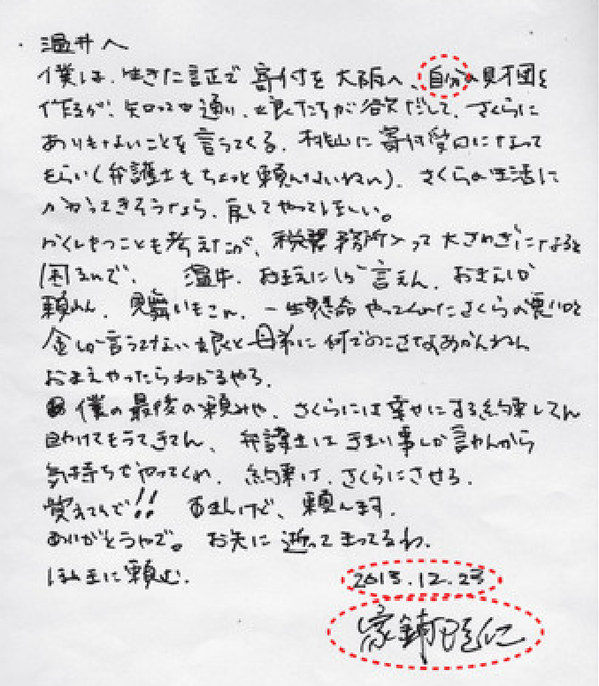 温井へ
僕は、生きた証で 寄付を 大阪へ、自分の財団を
作るが、知っての通り、娘たちが欲だして、さくらに
ありもないことを言うてくる。桃山に寄付受口になって
もらい(弁護士もちょっと頼んないねん)、さくらの生活に
かかってきそうなら、戻してやってほしい。
かくしもつことも考えたが、税務務所入って大さわぎになると
困るんで、 温井、おまえにしか言えん、おまえしか
頼れん、見舞いもこん、一生懸命やってくれたさくらの悪口と
金しか言うてない娘と母弟に何でのこさなあかんねん
おまえやったらわかるやろ、
僕の最後の頼みや、さくらには幸せにする約束してん
助けてもうてきてん、弁護士はきまい事しか言わんから
気持ちでやってくれ、約束は、さくらにさせる、
覚えてんで!! すまんけど、頼んます、
ありがとうやで。お先に逝ってまってるわ、
ほんまに頼む、
2013.12.23
家鋪隆仁